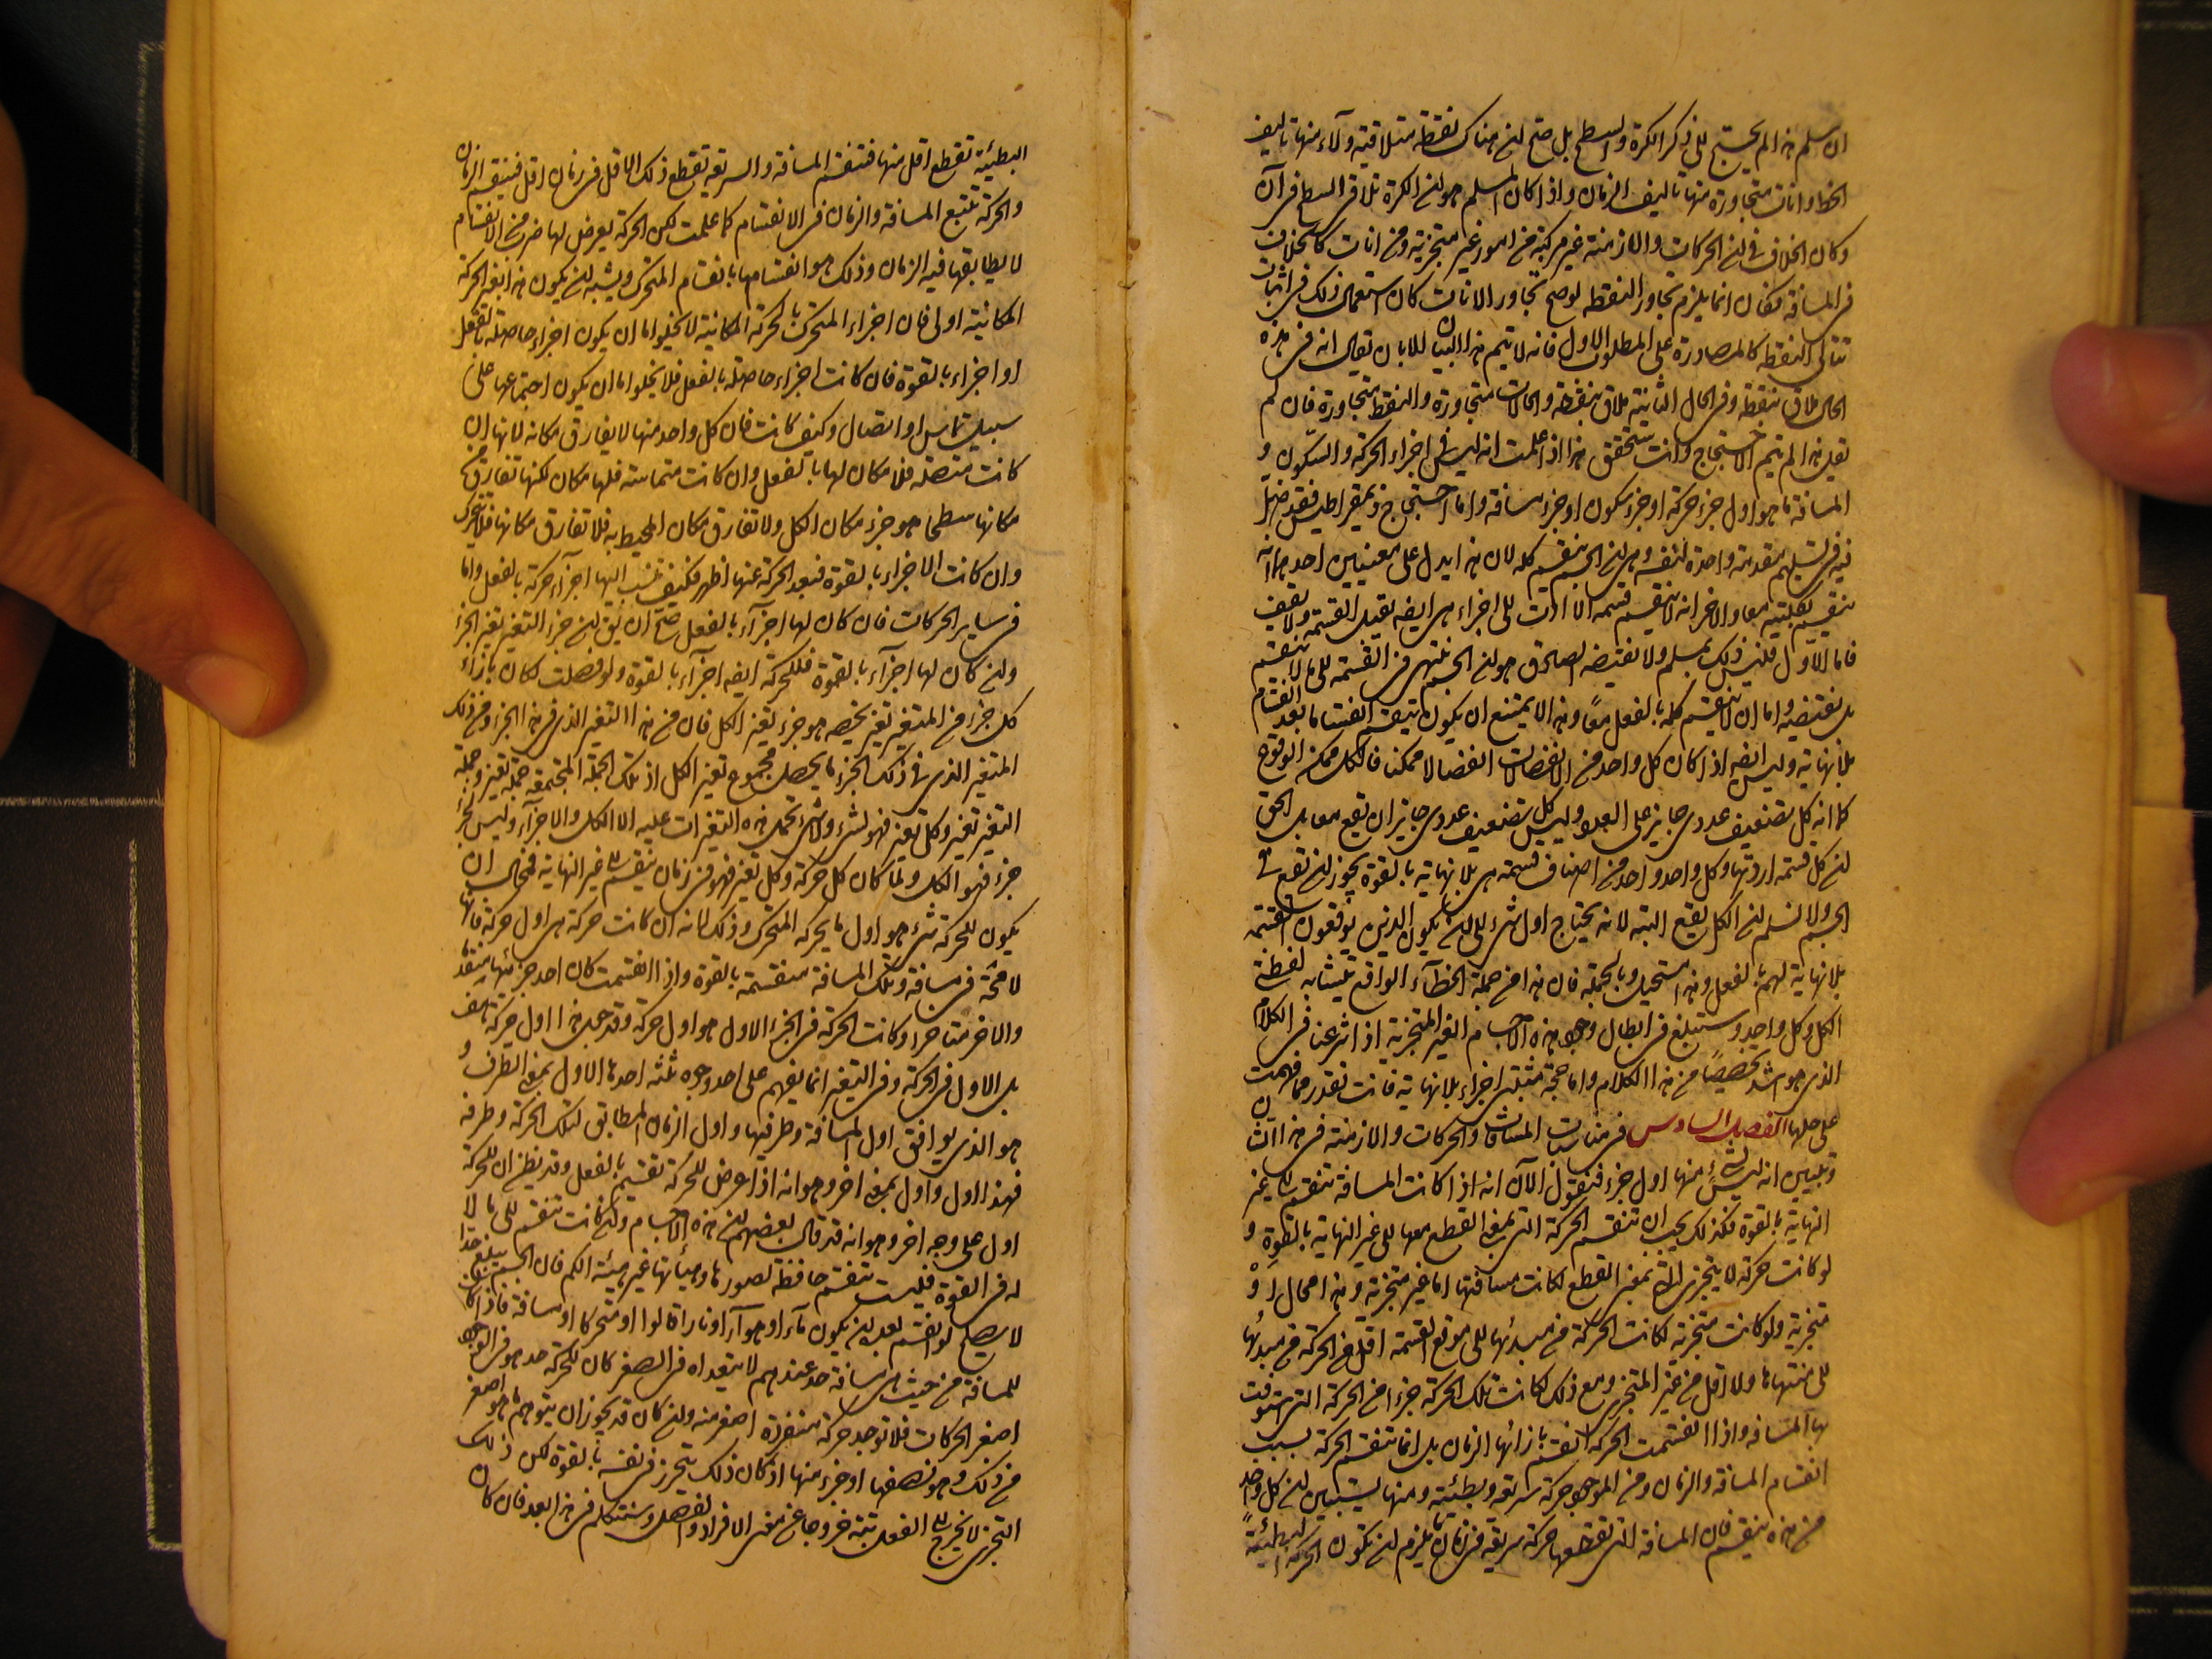 ان سلم هذا لم يحتج الى ذكر الكرة والسطح بل صح ان هناك نقطة متلاقية ولاء منها تاليف
الخط وانات متجاورة منها تاليف الزمان واذا كان المسلم هو ان الكرة تلاقى السطح فى آن
وكان الخلاف فى ان الحركات والازمنة غير مركبة من امور غير متجزية ومن انات كالخلاف
فى المسافة وكان انما يلزم تجاور النقطه لو صح تجاور الانات كان استعمال ذلك فى اثبات
تتالى النقطه كالمصادرة على المطلوب الاول فانه لا يتم هذا البيان الا بان تقال انه فى هذه
الحال ملاق بنقطة وفى الحال الثانية ملاق بنقطة والحالات متجاورة والنقط متجاورة فان لم
نقل هذا لم يتم الاحتجاج وانت ستحقق هذا اذا علمت انه ليس فى اجزاء الحركة والسكون و
المسافة ما هو اول جزء حركة او جزء سكون او جزء مسافة واما احتجاج ذيمقراطيس فقد ضل
فيه فى تسليم مقدمة واحدة لنفسه وهى ان الجسم ينقسم كله لان هذا يدل على معنيين احدهما انه
ينقسم بكليته معا والاخر انه لا ينقسم قسمة الا ادت الى اجزاء هى ايضه تقبل القسمه ولا تقف
فاما الاول فليس ذلك بمسلم ولا نقيضه الصادق هو ان الجسم تنتهى فى القسمة الى ما لا ينقسم
بل نقيضه واما ان لا ينقسم كله بالفعل معًا وهذا لا يمتنع ان يكون ينقسم انقسامًا بعد انقسام
بلا نهاية وليس ايضه اذا كان كل واحد من الانفصالات انفصالا ممكنا فالكل ممكن الوقوع
كما انه كل تضعيف عددى جايز على العدد وليس كل تضعيف عددى جايز ان تقع معا بل الحق
ان كل قسمة اردتها وكل واحد واحد من اصناف قسمة هى بلا نهاية بالقوة يجوز ان تقع فى
الجسم ولا نسلم ان الكل تقع البته لانه يحتاج اول شىء الى ان يكون الذين توقعون القسمه
بلا نهاية لهم بالفعل وهذا مستحيل وبالجملة فان هذا من جملة الخطاء الواقع بتشابه لفظة
الكل وكل واحد وستبلغ فى ابطال وجود هذه الاجسام الغير المتجزية اذا شرعنا فى الكلام
الذى هو اشد تخصيصًا من هذا الكلام واما حجة مثبتى اجزاء بلا نهاية فانت تقدر مما فهمت
على حلها الفصل السادس فى مناسبات المسافات والحركات والازمنة فى هذا الشان
وتبيين انه ليس لشىء منها اول جزء فنقول الآن انه اذا كانت المسافة تنقسم الى غير
النهاية بالقوة فكذلك يجب ان تنقسم الحركة التى بمعنى القطع معها الى غير النهاية بالقوة و
لو كانت حركة لا يتجزى بمعنى القطع لكانت مسافتها اما غير متجزية وهذا محال او
متجزية ولو كانت متجزية لكانت الحركة من مبدئها الى موقع القسمة اقل من الحركة من مبدئها
الى منتهاها ولا اقل من غير المتجزى ومع ذلك لكانت تلك الحركة جزءا من الحركة التى استوفت
بها المسافة واذا انقسمت الحركة انقسم بازائها الزمان بل انما تنقسم الحركة بسبب
انقسام المسافة والزمان ومن الموجود حركة سريعة وبطئية ومنها يستبين ان كل واحد
من هذه ينقسم فان المسافة التى تقطعها حركة سريعة فى زمان ما يلزم ان تكون الحركة البطئية
البطئية تقطع اقل منها فتنقسم المسافة والسريعة تقطع ذلك الاقل فى زمان اقل فينقسم الزمان
والحركة تتبع المسافة والزمان فى الانقسام كما علمت لكن الحركة يعرض لها ضرب من الانقسام
لا يطابقها فيه الزمان وذلك هو انقسامها بانقسام المتحرك ويشبه ان يكون هذا بغير الحركة
المكانية اولى فان اجزاء المتحرك بالحركة المكانية لا يخلوا اما ان يكون اجزاء حاصلة بالفعل
او اجزاء بالقوة فان كانت اجزاء حاصلة بالفعل فلا يخلوا اما ان يكون اجتماعها على
سبيل تماس او اتصال وكيف كانت فان كل واحد منها لا يفارق مكانه لانها ان
كانت متصلة فلا مكان لها بالفعل وان كانت متماسة فلها مكان لكنها تفارق من
مكانها سطحا هو جزء مكان الكل ولا تفارق مكان المحيط به فلا تفارق مكانها فلا تتحرك
وان كانت الاجزاء بالقوة فبعد الحركة عنها اظهر فكيف تنسب اليها اجزاء حركة بالفعل واما
فى ساير الحركات فان كان لها اجزاء بالفعل صح ان يق ان جزء التغير تغير الجزء
وان كان لها اجزآء بالقوة فللحركة ايضه اجزآء بالقوة ولو فصلت لكان بازاء
كل جزء من المتغير تغير يخصه هو جزء تغير الكل فان من هذا التغير الذى فى هذا الجزء ومن ذلك
المتغير الذى فى ذلك الجزء ما يحصل مجموع تغير الكل اذ تلك الجملة المجتمعة جملة تغير وجملة
التغير تغير وكل تغير فهو لشىء ولا شىء تحمل هذه التغيرات عليه الا الكل والاجزآء وليس لجزء
جزء فهو الكل ولما كان كل حركة وكل تغير فهو فى زمان ينقسم الى غير النهاية فمحال ان
يكون للحركة شىء هو اول ما يحركه المتحرك وذلك لانه ان كانت حركة هى اول حركة فانها
لا محة فى مسافة وتلك المسافة منقسمة بالقوة واذا انقسمت كان احد جزئيها متقدمًا
والاخر متاخرا وكانت الحركة فى الجزء الاول هو اول حركة وقد جعل هذا اول حركة هف
بل الاول فى الحركة وفى التغير انما يفهم على احد وجوه ثلثه احدها الاول بمعنى الطرف و
هو الذى يوافق اول المسافة وطرفها واول الزمان المطابق لتلك الحركة وطرفه
فهذا اول واول بمعنى اخر وهو انه اذا عرض للحركة تقسيم بالفعل وقد يظن ان للحركة
اول على وجه اخر وهو انه قد قال بعضهم ان هذه الاجسام وان كانت تنقسم الى ما لا
له فى القوة فليست تنقسم حافظة لصورها وهيأتها غير هيئة الكم فان الجسم يبلغ حدا
لا يصلح لو انقسم بعد ان يكون ماء او هوآء او نارا قالوا او متحركا او مسافة فاذا كان
للمسافة من حيث هى مسافة حد عندهم لا يتعداه فى الصغر كان للحركة حد هو فى الوجود
اصغر الحركات فلا توجد حركة منفردة اصغر منه وان كان قد يجوز ان يتوهم ما هو اصغر
من ذلك وهو نصفها او جزء منها اذ كان ذلك يتحرز فى نفسه بالقوة لكن ذلك
التجزى لا يخرج الى الفعل بتة خروجا عن معنى الافراد والفصل وسنتكلم فى هذا بعد فان كان